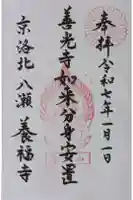 奉拝 令和七年一月一日
善光寺如来分身安置
京洛北八瀬 養福寺